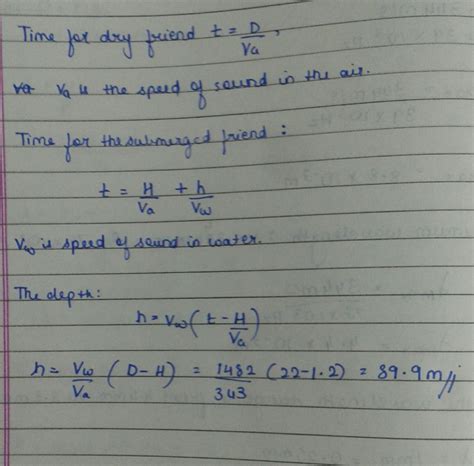 Time for dry friend t = D/Va,
Va is the speed of sound in the air.
Time for the submerged friend :
t = H/Va + h/Vw
Vw is speed of sound in water.
The depth:
h = Vw ( t - H/Va )
h = Vw/Va ( D - H ) = 1482/343 ( 22 - 1.2 ) = 89.9 m //